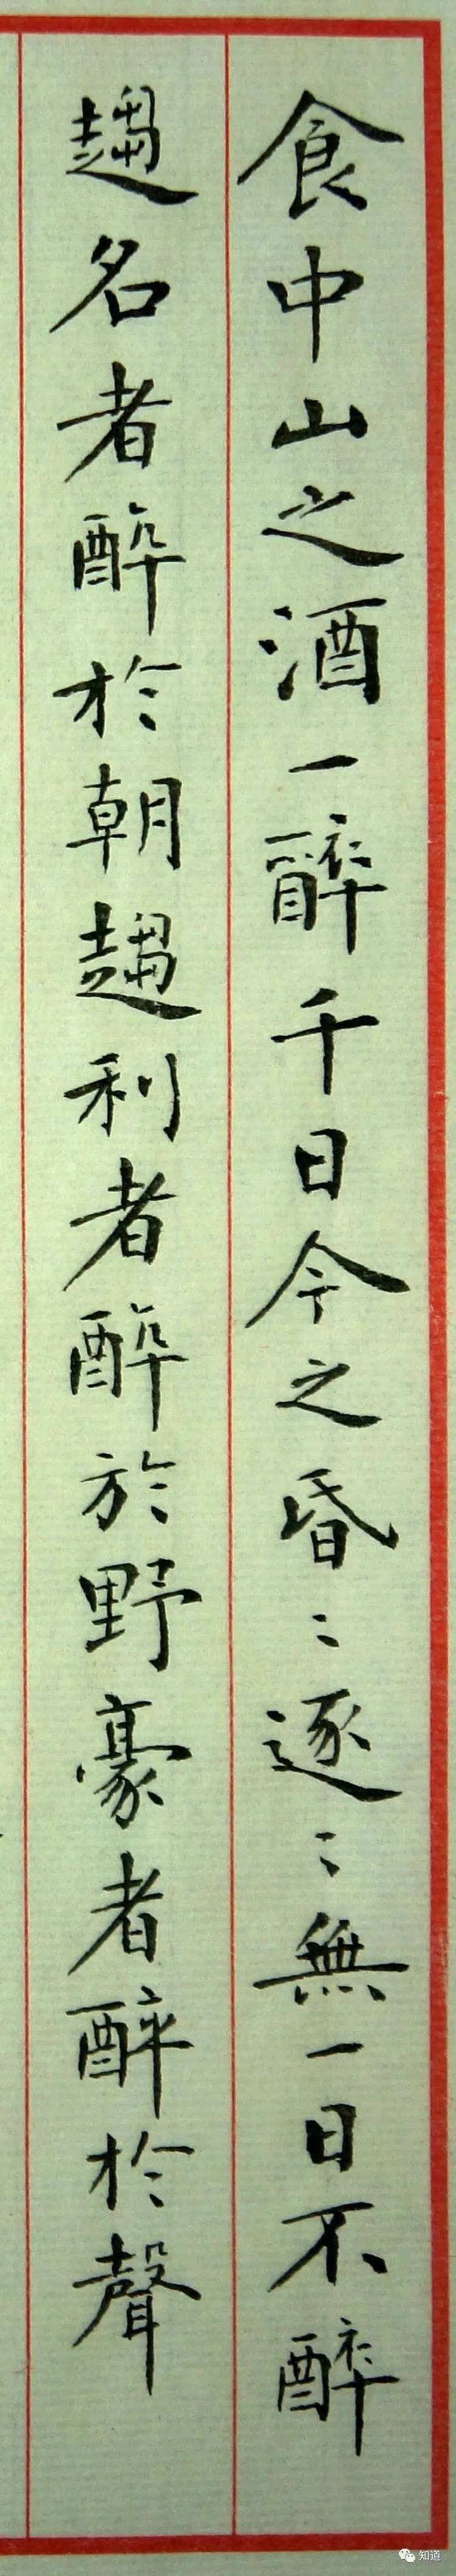 食中山之酒一醉千日今之昏〻逐〻無一日不醉
趨名者醉於朝趨利者醉於野豪者醉於聲
知道